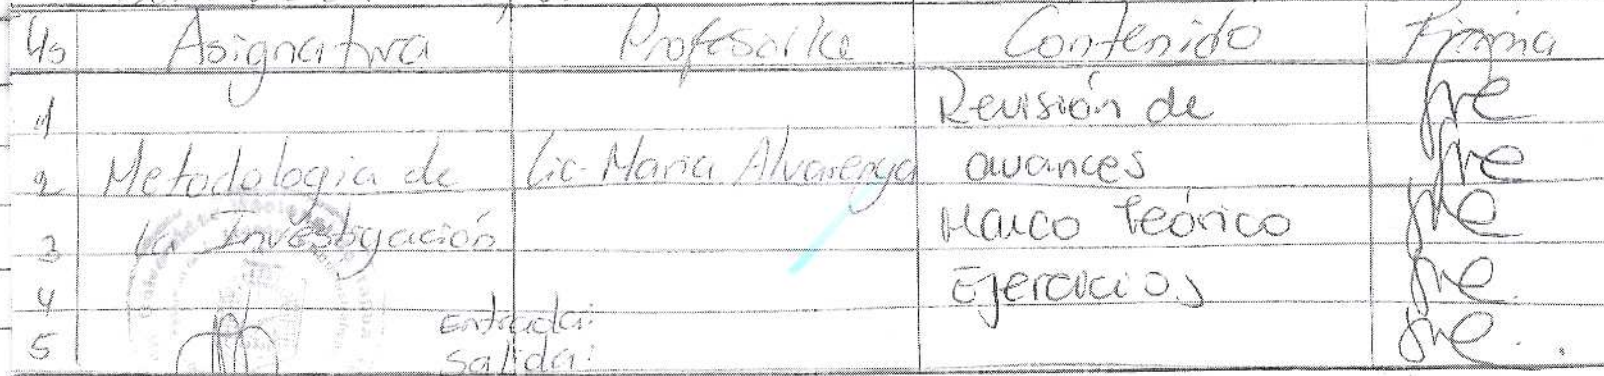 Hs Asignatura Profesor/a Contenido Firma
1 Revisión de
2 Metodologia de Lic. Maria Alvarenga avances
3 la Investigación Marco teórico
4 Ejercicios
Entrada:
5 Salida: